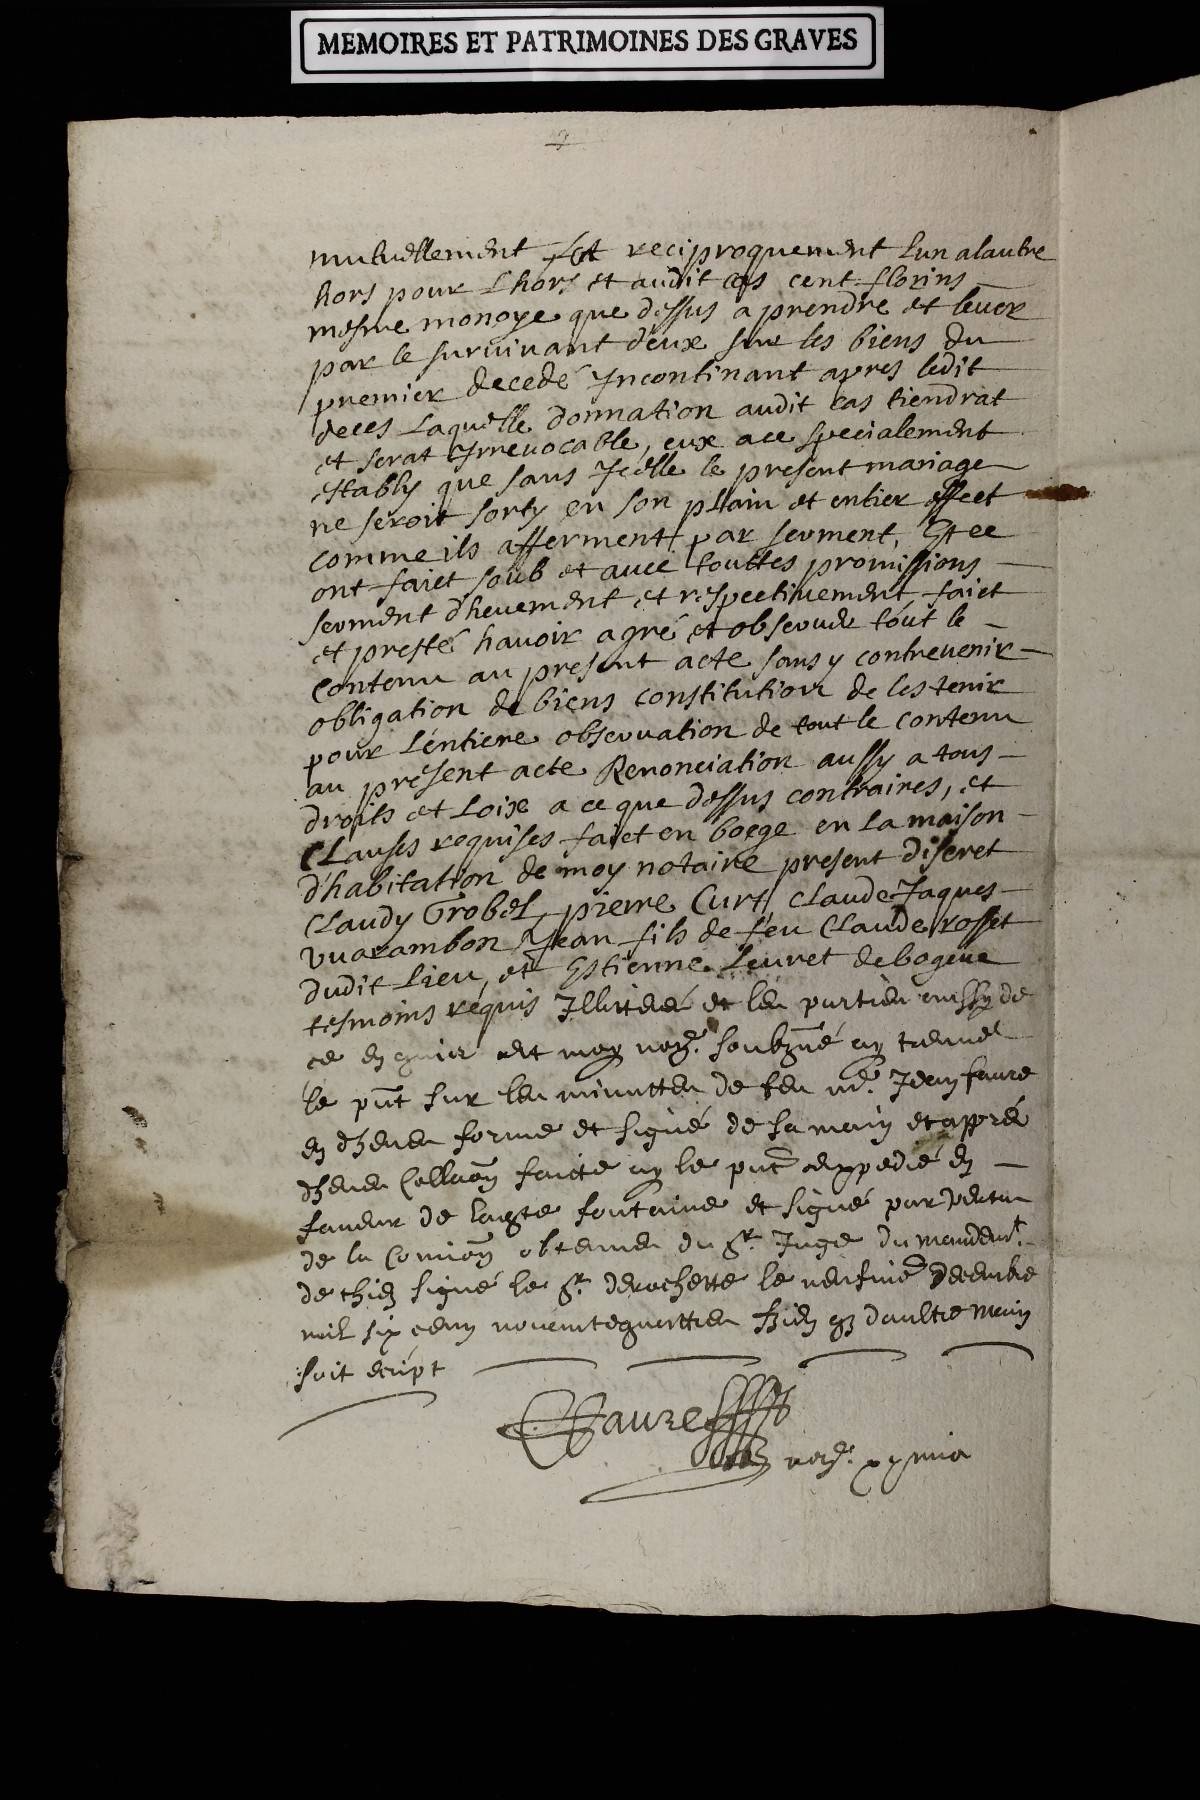 MEMOIRES ET PATRIMOINES DES GRAVES
7
mutuellement Et reciproquement lun alautre
hors pour lhors et audit cas cent florins
mesme monoye que dessus a prendre et lever
par le survivant deux sur les biens du
premier decedé Incontinant apres ledit
deces Laquelle donnation audit cas tiendrat
et serat Irrevocable, eux ace specialement
establys que sans Icelle le present mariage
ne seroit sorty en son plain et entier effect
comme ils afferment par serment, Et ce
ont faict soub et avec touttes promissions
serment dheuement et respectivement faict
et presté havoir agré et observer tout le
contenu au present acte sans y contrevenir
obligation de biens constitution de les tenir
pour Léntiere observation de tout le contenu
au présent acte Renonciation aussy a tous
droits et Loix a ce que dessus contraires, et
Clauses requises faict en boege en la maison
d'habitation de moy notaire present discret
Claudy Grobel, pierre Curt, Claude Jaques
vuarambon Jean fils de feu Claude rosset
dudit Lieu, et Estienne Leuret de bogeue
tesmoins requis Illitteres et les parties aussy de
ce Et moy nore. soubzné ay
le pnt sur les minuttes de feu me. Jean faure
en dheue forme et signé de sa main et appres
dheue Collaon faicte ay le pnt expedié en
faveur de fontaine et signé par vertu
de la Comion obtenue du Sr. Juge du mandemt.
de thiez signé le Sr. derochette le neufme Decembre
mil six cent nonantequattre bien qz daultre main
soit escript
Faure
nore.